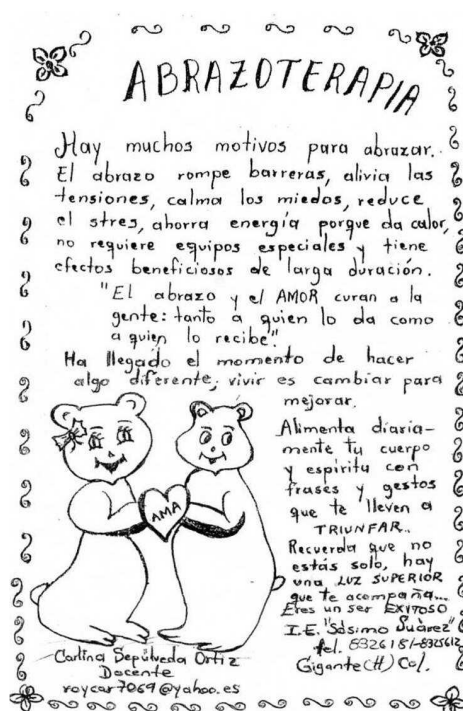 ABRAZOTERAPIA
Hay muchos motivos para abrazar.
El abrazo rompe barreras, alivia las
tensiones, calma los miedos, reduce
el stres, ahorra energía porque da calor,
no requiere equipos especiales y tiene
efectos beneficiosos de larga duración.
"El abrazo y el AMOR curan a la
gente: tanto a quien lo da como
a quien lo recibe".
Ha llegado el momento de hacer
algo diferente; vivir es cambiar para
mejorar.
Alimenta diaria-
mente tu cuerpo
y espiritu con
frases y gestos
que te lleven a
TRIUNFAR...
Recuerda que no
estás solo, hay
una LUZ SUPERIOR
que te acompaña...
Eres un ser EXITOSO
I.E. "Sósimo Suárez"
tel. 8326181-8325612
Gigante (H) Col.
AMA
Carlina Sepúlveda Ortiz
Docente
roycar7069@yahoo.es